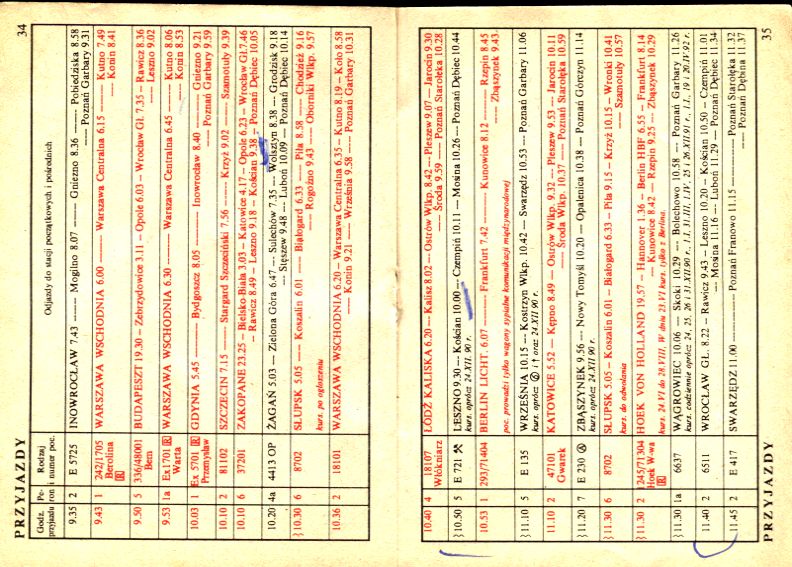 34
PRZYJAZDY
Godz. przyjazdu
Peron
Rodzaj i numer poc.
Odjazdy do stacji początkowych i pośrednich
9.35 2 E 5725 INOWROCŁAW 7.43 ------ Mogilno 8.07 ------ Gniezno 8.36 ------ Pobiedziska 8.58
------ Poznań Garbary 9.31
9.43 1 242/1705 Berolina R WARSZAWA WSCHODNIA 6.00 ------ Warszawa Centralna 6.15 ------ Kutno 7.49
------ Konin 8.41
9.50 5 336/48001 Bem BUDAPESZT 19.30 – Zebrzydowice 3.11 – Opole 6.03 – Wrocław Gł. 7.35 – Rawicz 8.36
– Leszno 9.02
9.53 1a Ex1701 R Warta WARSZAWA WSCHODNIA 6.30 ------ Warszawa Centralna 6.45 ------ Kutno 8.06
------ Konin 8.53
10.03 1 Ex 5701 R Przemysław GDYNIA 5.45 ------ Bydgoszcz 8.05 ------ Inowrocław 8.40 ------ Gniezno 9.21
------ Poznań Garbary 9.59
10.10 2 81102 SZCZECIN 7.15 ------ Stargard Szczeciński 7.56 ------ Krzyż 9.02 ------ Szamotuły 9.39
10.10 6 37201 ZAKOPANE 23.25 – Bielsko-Biała 3.03 – Katowice 4.17 – Opole 6.23 – Wrocław Gł. 7.46
– Rawicz 8.49 – Leszno 9.18 – Kościan 9.38 – Poznań Dębiec 10.05
10.20 4a 4413 OP ŻAGAŃ 5.03 --- Zielona Góra 6.47 --- Sulechów 7.35 --- Wolsztyn 8.38 --- Grodzisk 9.18
--- Stęszew 9.48 --- Luboń 10.09 --- Poznań Dębiec 10.14
10.30 6 8702 SŁUPSK 5.05 ---- Koszalin 6.01 ---- Białogard 6.33 ---- Piła 8.58 ---- Chodzież 9.16
kurs. po ogłoszeniu ---- Rogoźno 9.43 ---- Oborniki Wlkp. 9.57
10.36 2 18101 WARSZAWA WSCHODNIA 6.20 – Warszawa Centralna 6.35 – Kutno 8.19 – Koło 8.58
– Konin 9.21 – Września 9.58 – Poznań Garbary 10.31
10.40 4 18107 Włókniarz ŁÓDŹ KALISKA 6.20 – Kalisz 8.02 – Ostrów Wlkp. 8.42 – Pleszew 9.07 – Jarocin 9.30
– Środa 9.59 – Poznań Starołęka 10.28
10.50 5 E 721 LESZNO 9.30 --- Kościan 10.00 --- Czempiń 10.11 --- Mosina 10.26 --- Poznań Dębiec 10.44
kurs. oprócz 24.XII. 90 r.
10.53 1 293/71404 BERLIN LICHT. 6.07 ------ Frankfurt 7.42 ------ Kunowice 8.12 ------ Rzepin 8.45
------ Zbąszynek 9.43
poc. prowadzi tylko wagony sypialne komunikacji międzynarodowej
11.10 5 E 135 WRZEŚNIA 10.15 --- Kostrzyn Wlkp. 10.42 --- Swarzędz 10.53 --- Poznań Garbary 11.06
kurs. oprócz Ⓒ i † oraz 24.XII 90 r.
11.10 2 47101 Gwarek KATOWICE 5.52 – Kępno 8.49 – Ostrów Wlkp. 9.32 – Pleszew 9.53 – Jarocin 10.11
– Środa Wlkp. 10.37 ------ Poznań Starołęka 10.59
11.20 7 E 230 Ⓐ ZBĄSZYNEK 9.56 --- Nowy Tomyśl 10.20 --- Opalenica 10.38 --- Poznań Górczyn 11.14
kurs. oprócz 24.XII. 90 r.
11.30 6 8702 SŁUPSK 5.05 – Koszalin 6.01 – Białogard 6.33 – Piła 9.15 – Krzyż 10.15 – Wronki 10.41
kurs. do odwołania – Szamotuły 10.57
11.30 2 1245/71304 Hoek W-wa R HOEK VON HOLLAND 19.57 – Hannover 1.36 – Berlin HBF 6.55 – Frankfurt 8.14
– Kunowice 8.42 – Rzepin 9.25 – Zbąszynek 10.29
kurs. 24 VI do 28.VIII. W dniu 23 VI kurs. tylko z Berlina.
11.30 1a 6637 WĄGROWIEC 10.06 --- Skoki 10.29 --- Bolechowo 10.58 --- Poznań Garbary 11.26
kurs. codziennie oprócz 24, 25, 26 i 31.XII 90 r.
11.40 2 6511 WROCŁAW GŁ. 8.22 – Rawicz 9.43 – Leszno 10.20 – Kościan 10.50 – Czempiń 11.01
– Mosina 11.16 – Luboń 11.29 – Poznań Dębiec 11.34
11.45 2 E 417 SWARZĘDZ 11.00 ------ Poznań Franowo 11.15 ------ Poznań Starołęka 11.32
------ Poznań Dębina 11.37
PRZYJAZDY
35